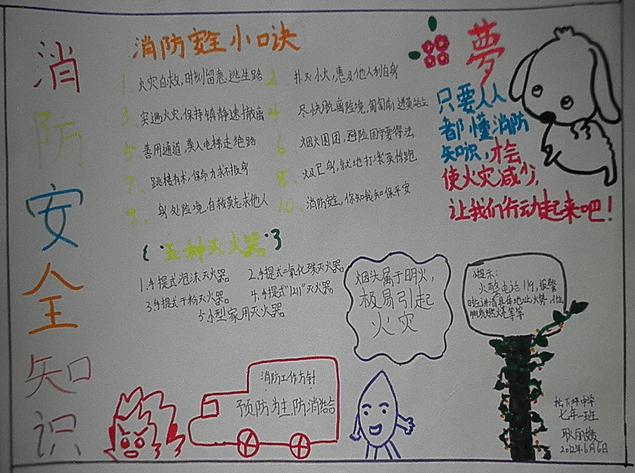 消防安全知识
消防安全小口诀
1、火灾自救,时刻留意,逃生路
2 扑灭小火,惠及他人利自身
3、突遇火灾,保持镇静速撤离
4 尽快脱离险境,
5、善用通道,莫入电梯走绝路
6 烟火围困,避险固守要得法
7、跳楼有术,保命力求不损身
8、火及己身,就地打滚莫惊跑
9、身处险境,自救莫忘求他人
10、消防安全,你知我知保平安
五种灭火器
1.手提式泡沫灭火器
2.手提式二氧化碳灭火器
3.手提式干粉灭火器。
4.手提式"1211"灭火器
5.小型家用灭火器
夢
只要人人
都懂消防
知识,才会
使火灾减少,
让我们行动起来吧!
烟头属于明火,
极易引起
火灾
提示:
火警电话119,报警
消防工作方针
预防为主防消结合
七年一班
2012年6月6日